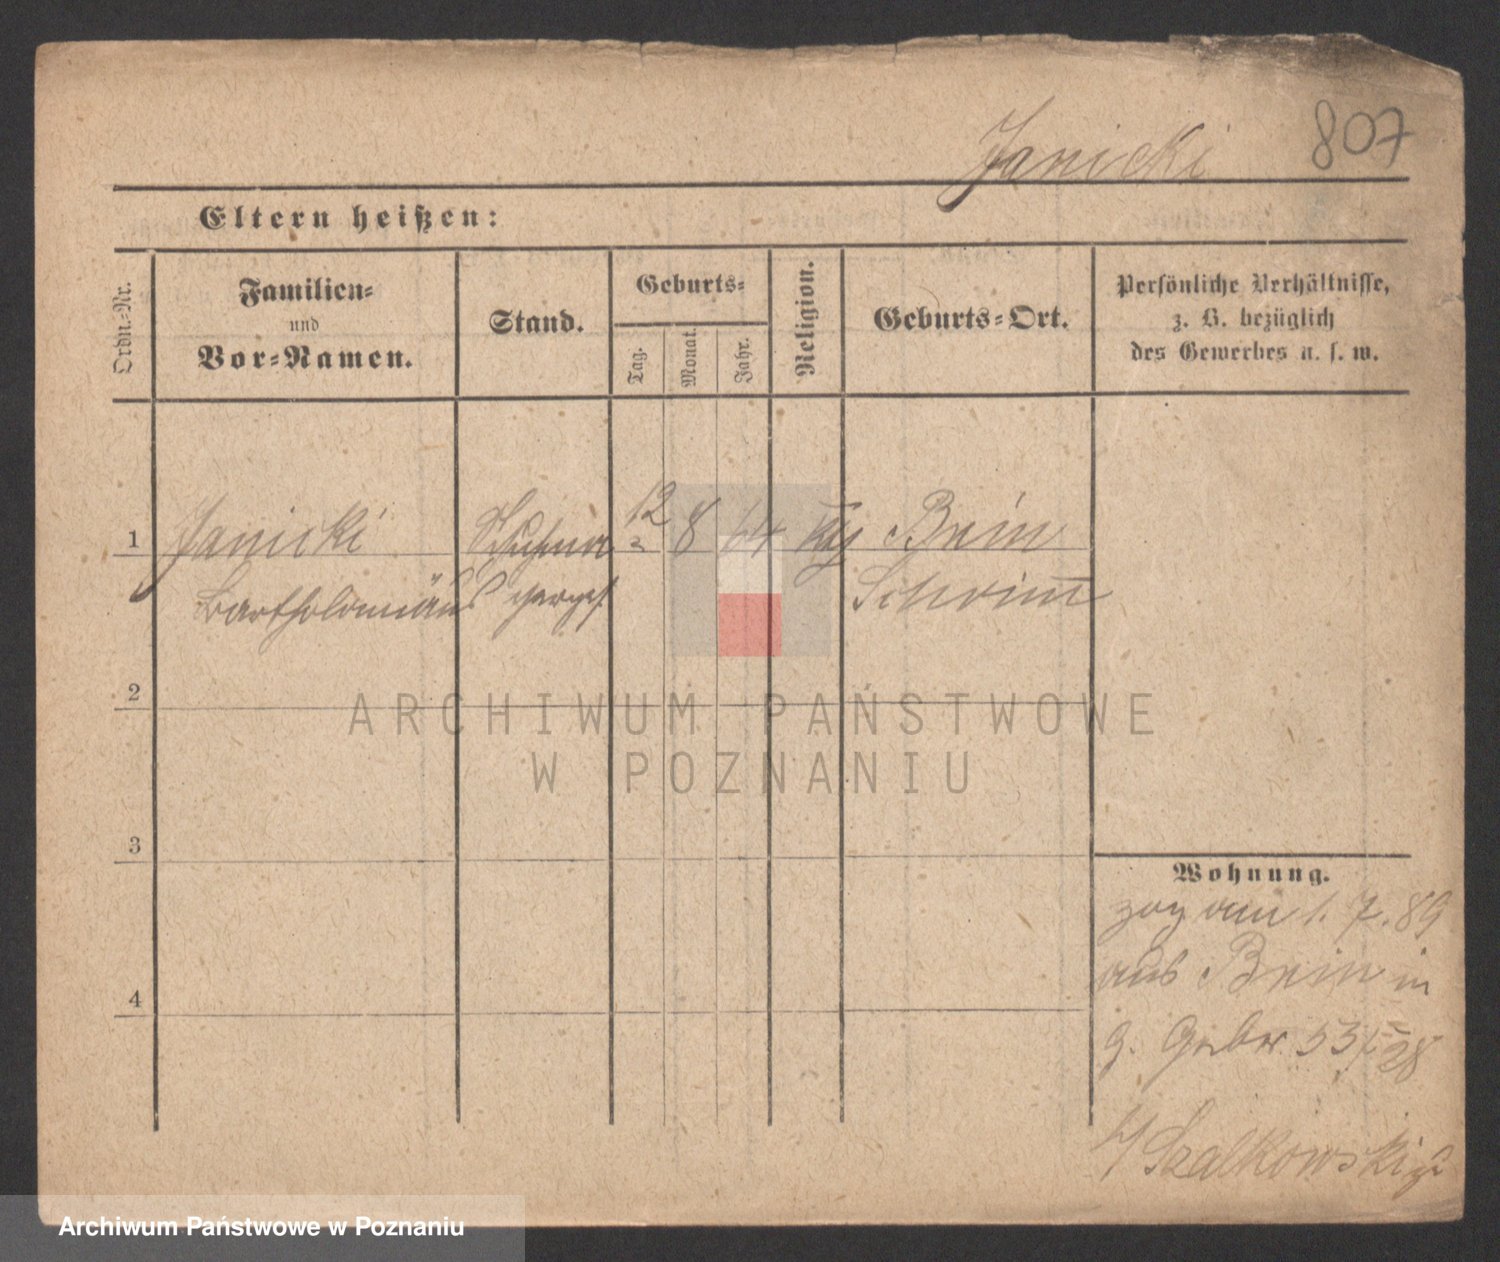 Janicki 807
Eltern heißen:
Ordn.-Nr.
Familien-
und
Vor-Namen.
Stand.
Geburts-
Tag.
Monat.
Jahr.
Religion.
Geburts-Ort.
Persönliche Verhältnisse,
z. B. bezüglich
des Gewerbes u. s. w.
1 Janicki Schuhma 12 8 64 Bnin
Bartholomäus chergs. Schrimm
2
ARCHIWUM PAŃSTWOWE
W POZNANIU
3
Wohnung.
zog am 1. 7. 89
aus Bnin in
g. Gerbr. 53
4
Szalkowski
Archiwum Państwowe w Poznaniu